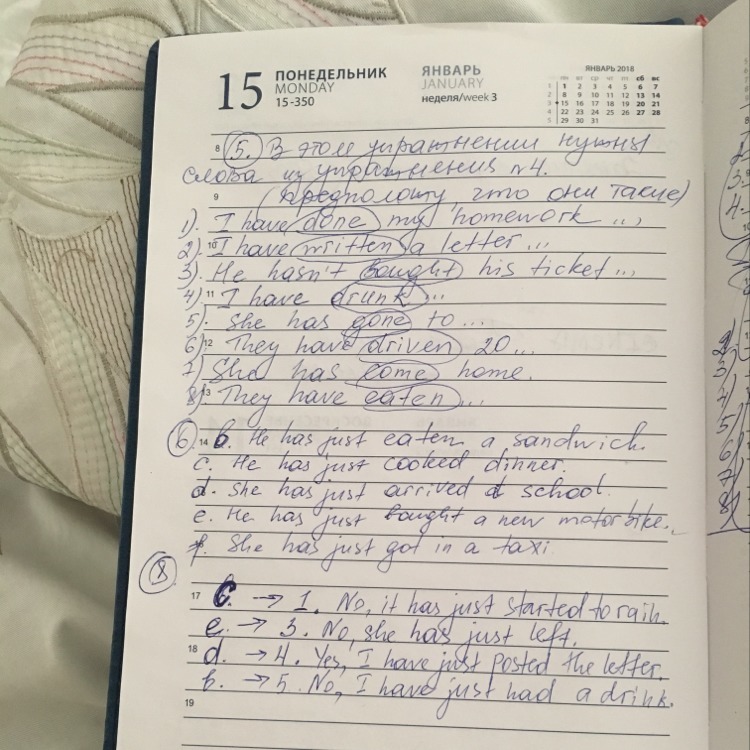 15 ПОНЕДЕЛЬНИК
MONDAY
15-350
ЯНВАРЬ
JANUARY
неделя/week 3
ЯНВАРЬ 2018
пн вт ср чт пт сб вс
1 1 2 3 4 5 6 7
2 8 9 10 11 12 13 14
3 15 16 17 18 19 20 21
4 22 23 24 25 26 27 28
5 29 30 31
8 5. В этом упражнении нужны
слова из упражнения №4.
9 (предположу, что они такие)
1). I have done my homework...
2). 10 I have written a letter...
3). He hasn't bought his ticket...
4). 11 I have drunk...
5). She has gone to...
6). 12 They have driven 20...
7). She has come home.
8). 13 They have eaten...
6 14 b. He has just eaten a sandwich.
c. He has just cooked dinner.
d. She has just arrived at school.
e. He has just bought a new motorbike.
f. She has just got in a taxi.
8
17 c. → 1. No, it has just started to rain.
e. → 3. No, she has just left.
18 d. → 4. Yes, I have just posted the letter.
b. → 5. No, I have just had a drink.
19